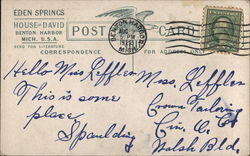 EDEN SPRINGS
HOUSE OF DAVID
BENTON HARBOR
MICH. U.S.A.
SEND FOR LITERATURE
POST CARD
BENTON HARBOR
MICH.
CORRESPONDENCE
FOR ADDRESS
Hello Miss Leffler
This is some
place
Spaulding
Miss. Leffler
Crown Tailoring
Cin. O.
Walsh Bld.